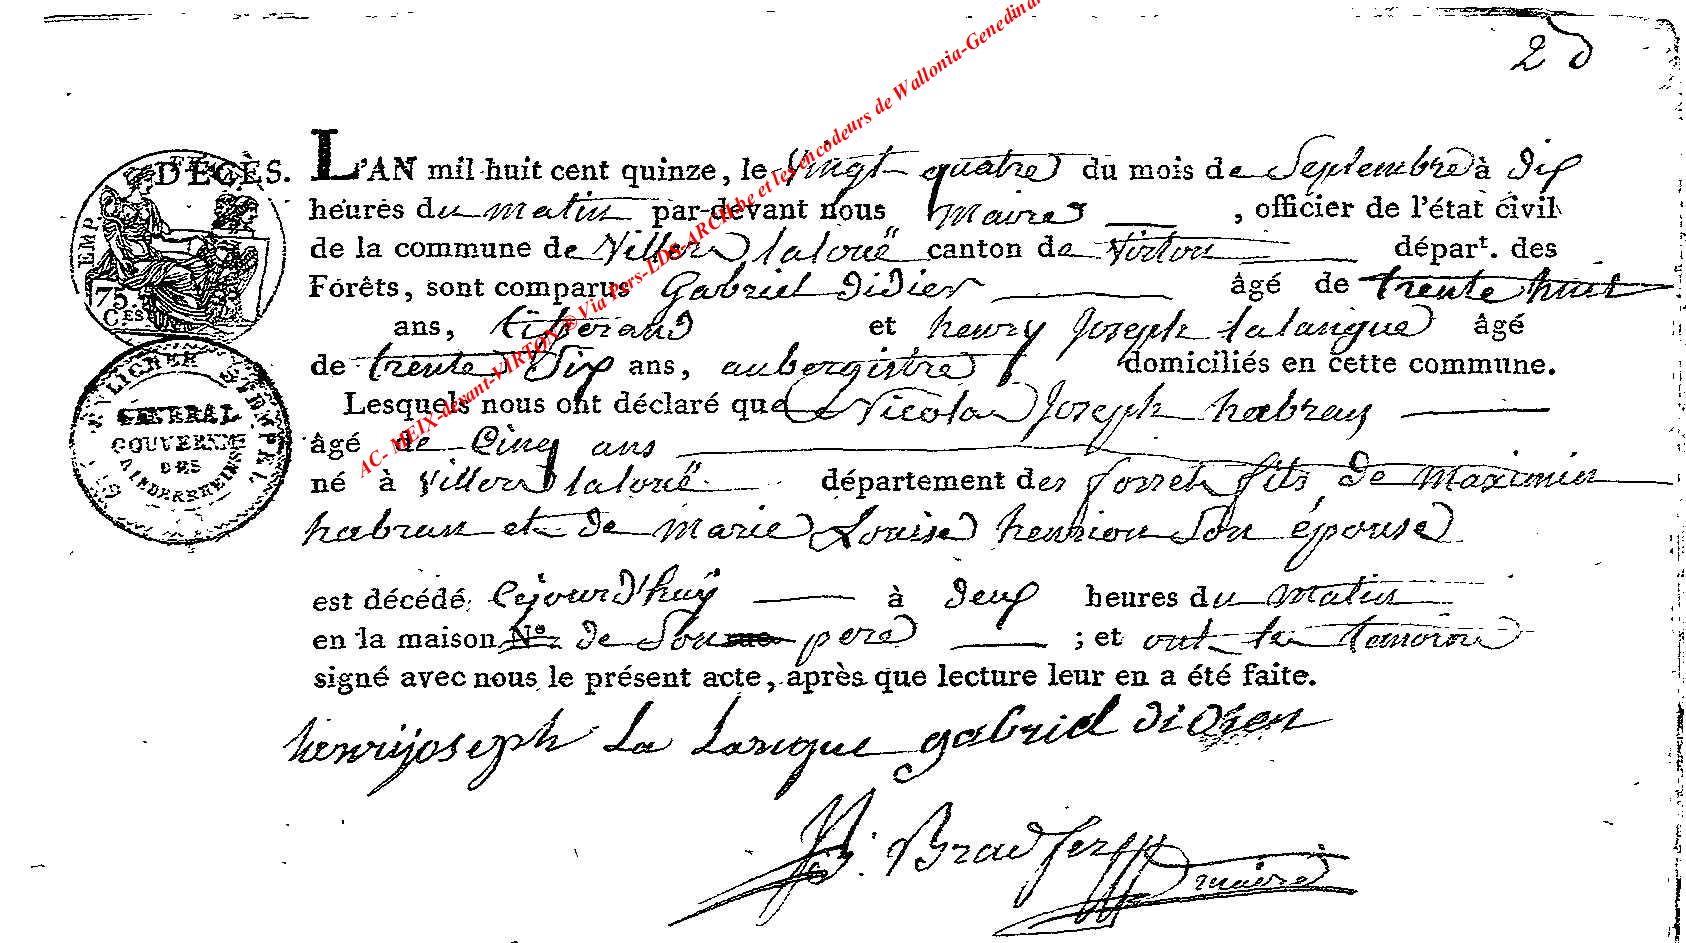 2 d
DÉCÈS. L'AN mil huit cent quinze, le vingt quatre du mois de Septembre à dix
heures du matin par-devant nous maire , officier de l'état civil
de la commune de Villers laloue canton de Virton départ. des
Forêts, sont comparus gabriel didier âgé de trente huit
ans, et henry Joseph lalangue âgé
de trente Six ans, aubergistre domiciliés en cette commune.
Lesquels nous ont déclaré que Nicolas Joseph habran
âgé de Cinq ans
né à Villers laloue département des forret fils de maximin
habran et de marie Louise henrion Son épouse
est décédé cejourd'huÿ à deux heures du matin
en la maison N° de Son pere ; et ont les temoins
signé avec nous le présent acte, après que lecture leur en a été faite.
henrijoseph La Langue gabriel didier
Bradfer maire
EMP
75.
CES
GENERAL
GOUVERNEM
DES
NIEDERRHEINS
STEMPEL
AC- MEIX-devant-VIRTON® Via Pers-LDS-ARCH.be et les encodeurs de Wallonia-Genedinar